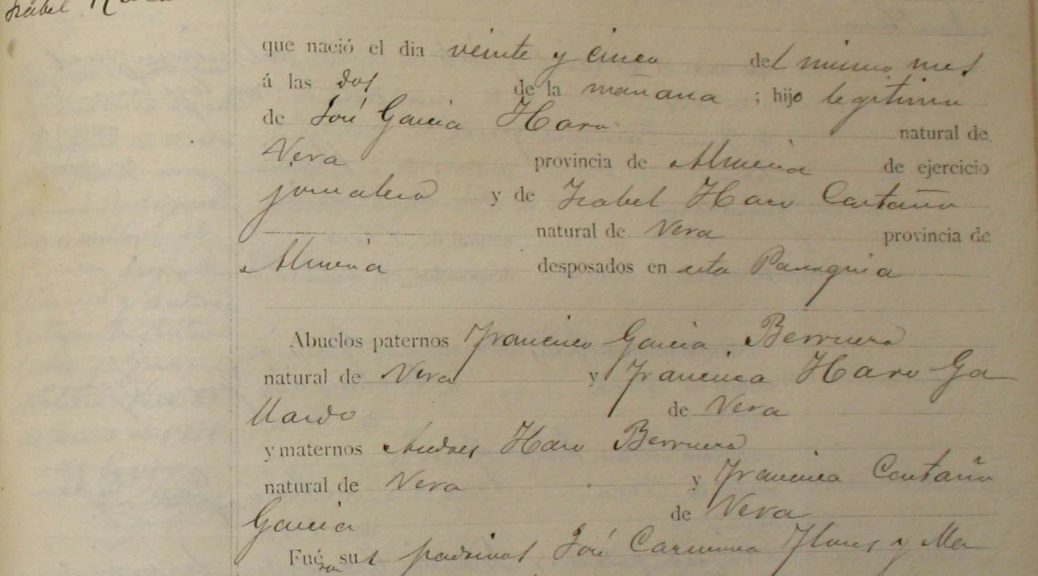 Isabel
que nació el dia veinte y cinco del mismo mes
á las dos de la mañana ; hijo legitimo
de José Garcia Haro natural de
Vera provincia de Almeria de ejercicio
jornalero y de Isabel Haro Castaño
natural de Vera provincia de
Almeria desposados en esta Parroquia
Abuelos paternos Francisco Garcia Berruezo
natural de Vera y Francisca Haro Ga
llardo de Vera
y maternos Andres Haro Berruezo
natural de Vera y Francisca Castaño
Garcia de Vera
Fueron sus padrinos José Carmona Flores y Ma